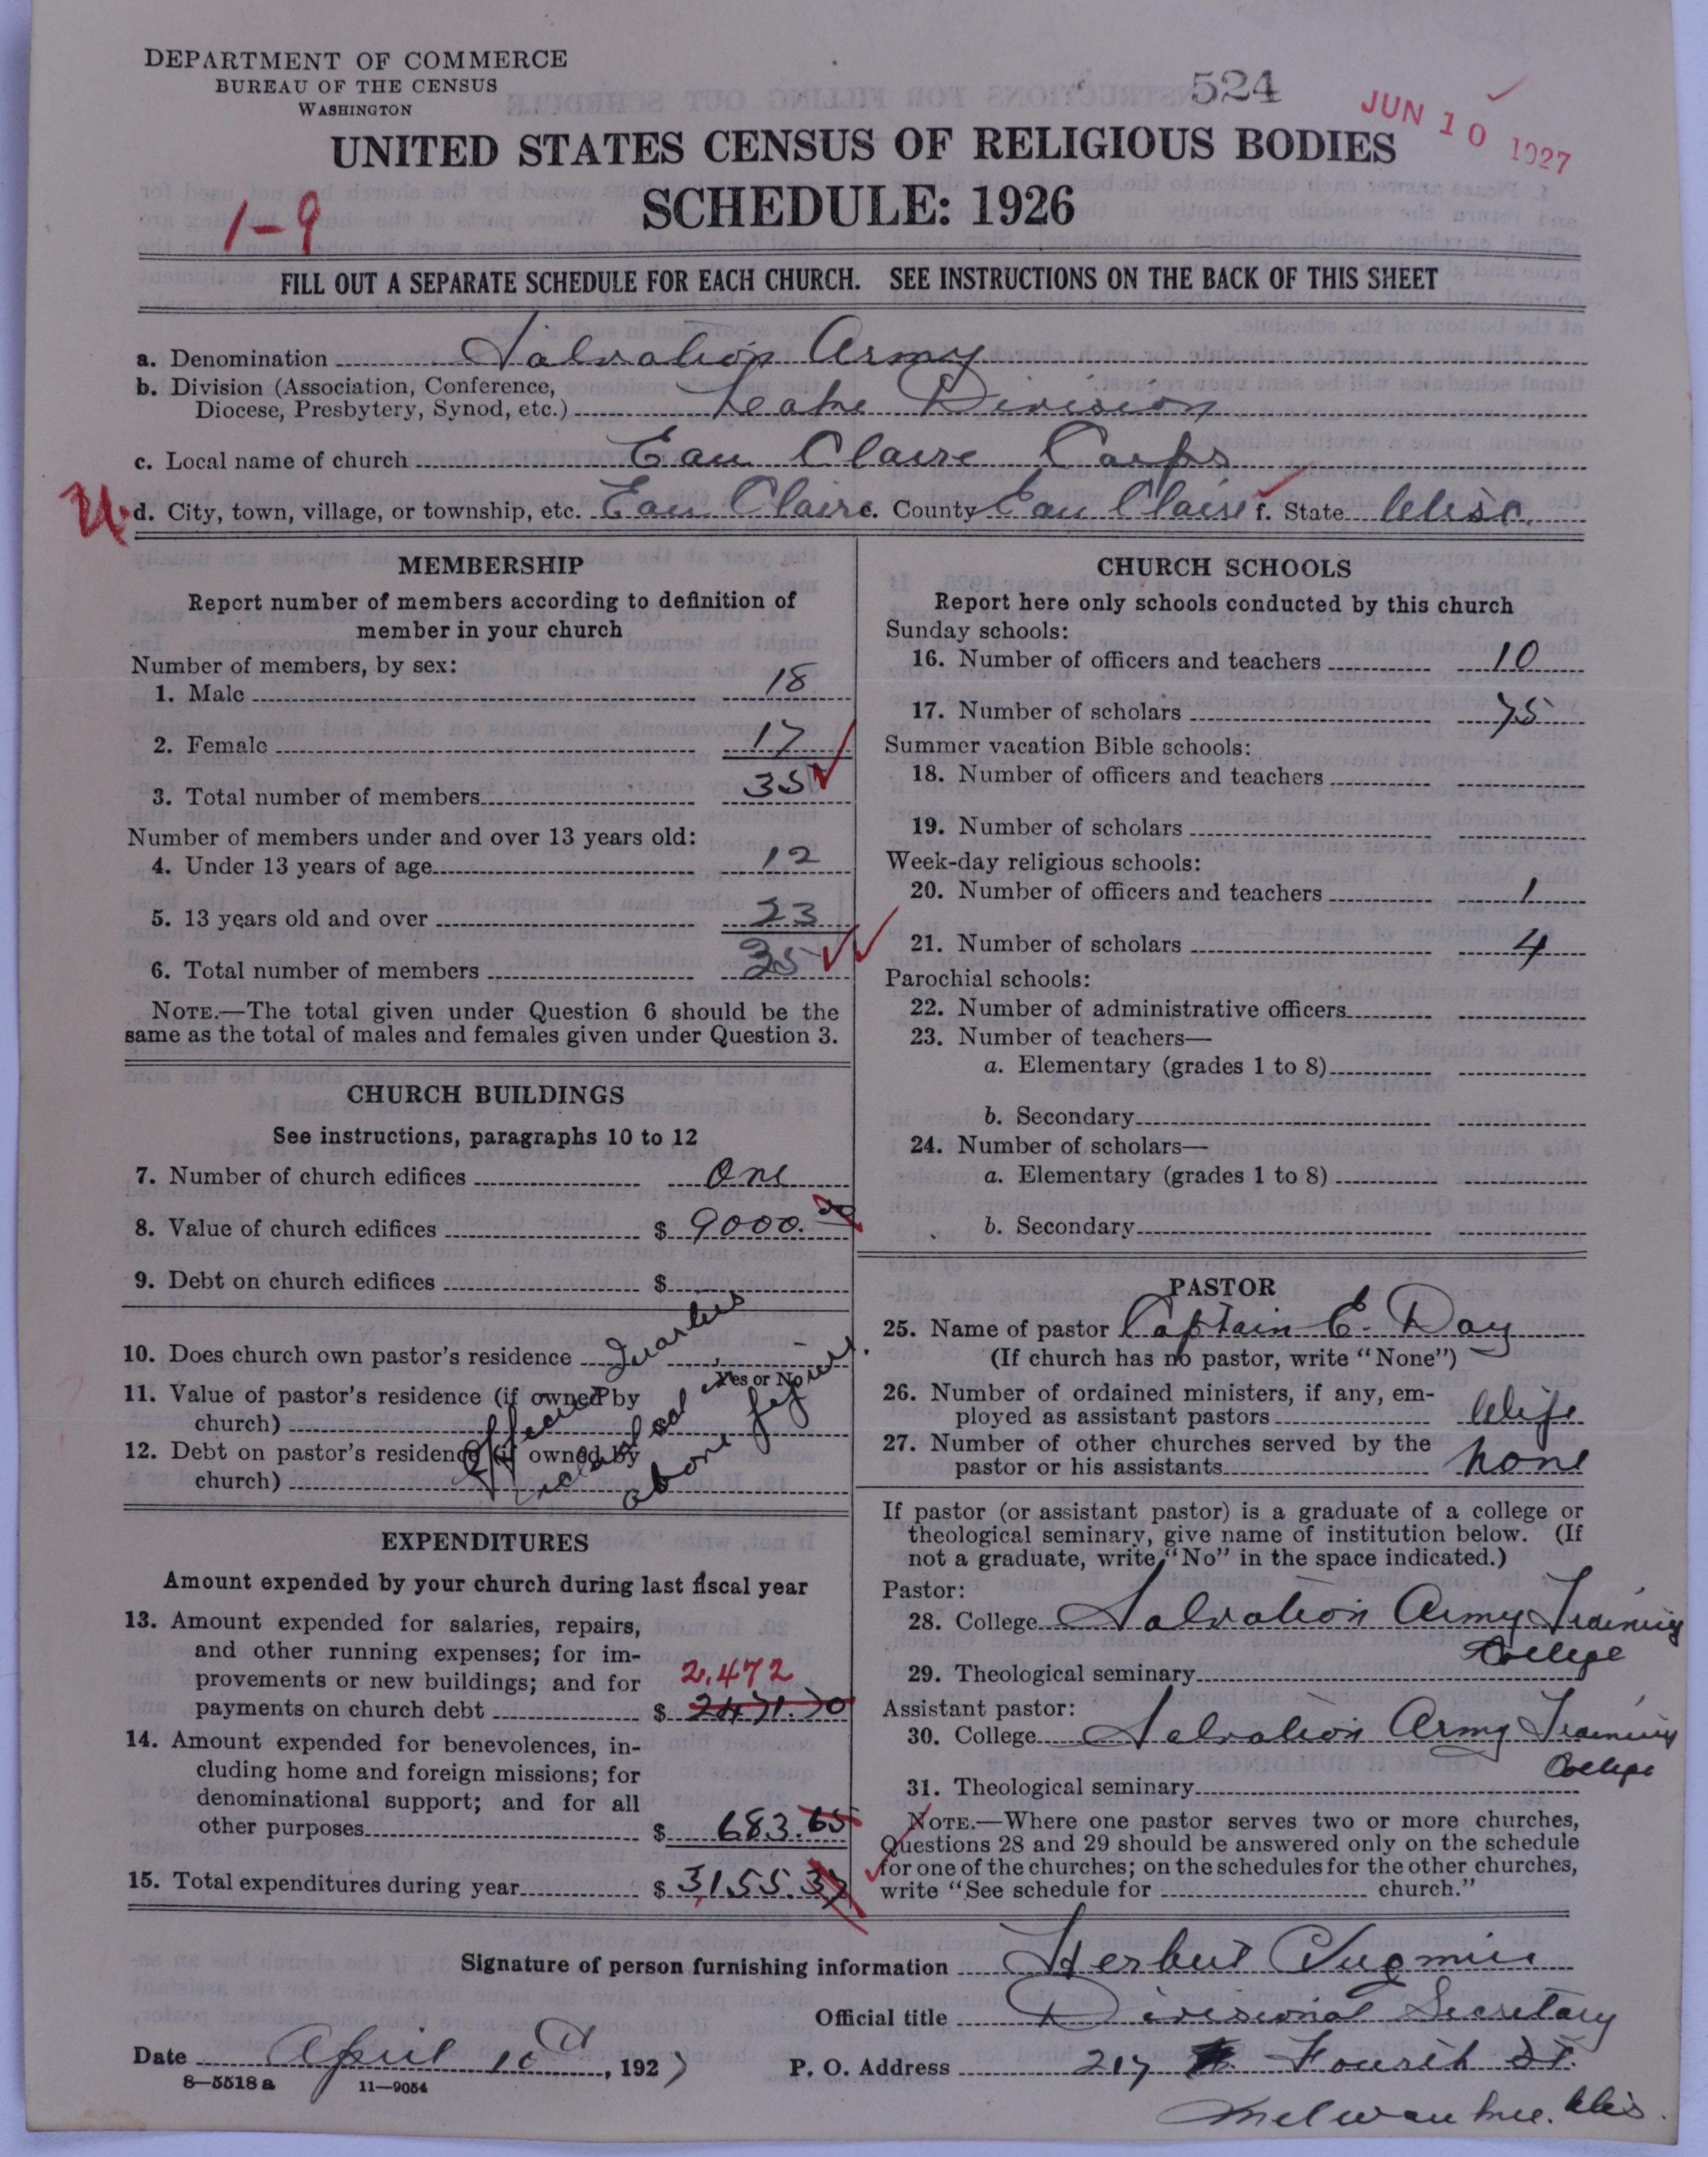 DEPARTMENT OF COMMERCE
BUREAU OF THE CENSUS
WASHINGTON
524
JUN 10 1927
UNITED STATES CENSUS OF RELIGIOUS BODIES
SCHEDULE: 1926
1-9
FILL OUT A SEPARATE SCHEDULE FOR EACH CHURCH. SEE INSTRUCTIONS ON THE BACK OF THIS SHEET
a. Denomination Salvation Army
b. Division (Association, Conference,
Diocese, Presbytery, Synod, etc.) Lake Division
c. Local name of church Eau Claire Corps
d. City, town, village, or township, etc. Eau Claire e. County Eau Claire f. State Wisc.
MEMBERSHIP
Report number of members according to definition of
member in your church
Number of members, by sex:
1. Male 18
2. Female 17
3. Total number of members 35
Number of members under and over 13 years old:
4. Under 13 years of age 12
5. 13 years old and over 23
6. Total number of members 35
NOTE.—The total given under Question 6 should be the
same as the total of males and females given under Question 3.
CHURCH BUILDINGS
See instructions, paragraphs 10 to 12
7. Number of church edifices One
8. Value of church edifices $ 9000.00
9. Debt on church edifices $
10. Does church own pastor's residence
Yes or No
11. Value of pastor's residence (if owned by
church)
12. Debt on pastor's residence (if owned by
church)
Officers Quarters
included in
above figures.
EXPENDITURES
Amount expended by your church during last fiscal year
13. Amount expended for salaries, repairs,
and other running expenses; for im-
provements or new buildings; and for 2,472
payments on church debt $ 2471.70
14. Amount expended for benevolences, in-
cluding home and foreign missions; for
denominational support; and for all
other purposes $ 683.65
15. Total expenditures during year $ 3155.37
CHURCH SCHOOLS
Report here only schools conducted by this church
Sunday schools:
16. Number of officers and teachers 10
17. Number of scholars 75
Summer vacation Bible schools:
18. Number of officers and teachers
19. Number of scholars
Week-day religious schools:
20. Number of officers and teachers 1
21. Number of scholars 4
Parochial schools:
22. Number of administrative officers
23. Number of teachers—
a. Elementary (grades 1 to 8)
b. Secondary
24. Number of scholars—
a. Elementary (grades 1 to 8)
b. Secondary
PASTOR
25. Name of pastor Captain E. Day
(If church has no pastor, write "None")
26. Number of ordained ministers, if any, em-
ployed as assistant pastors Wife
27. Number of other churches served by the
pastor or his assistants none
If pastor (or assistant pastor) is a graduate of a college or
theological seminary, give name of institution below. (If
not a graduate, write "No" in the space indicated.)
Pastor:
28. College Salvation Army Training
College
29. Theological seminary
Assistant pastor:
30. College Salvation Army Training
College
31. Theological seminary
NOTE.—Where one pastor serves two or more churches,
Questions 28 and 29 should be answered only on the schedule
for one of the churches; on the schedules for the other churches,
write "See schedule for church."
Signature of person furnishing information Herbert Pugmire
Official title Divisional Secretary
Date April 10th, 1927 P. O. Address 217 Fourth St.
8—5518 a 11—9054
Milwaukee. Wis.